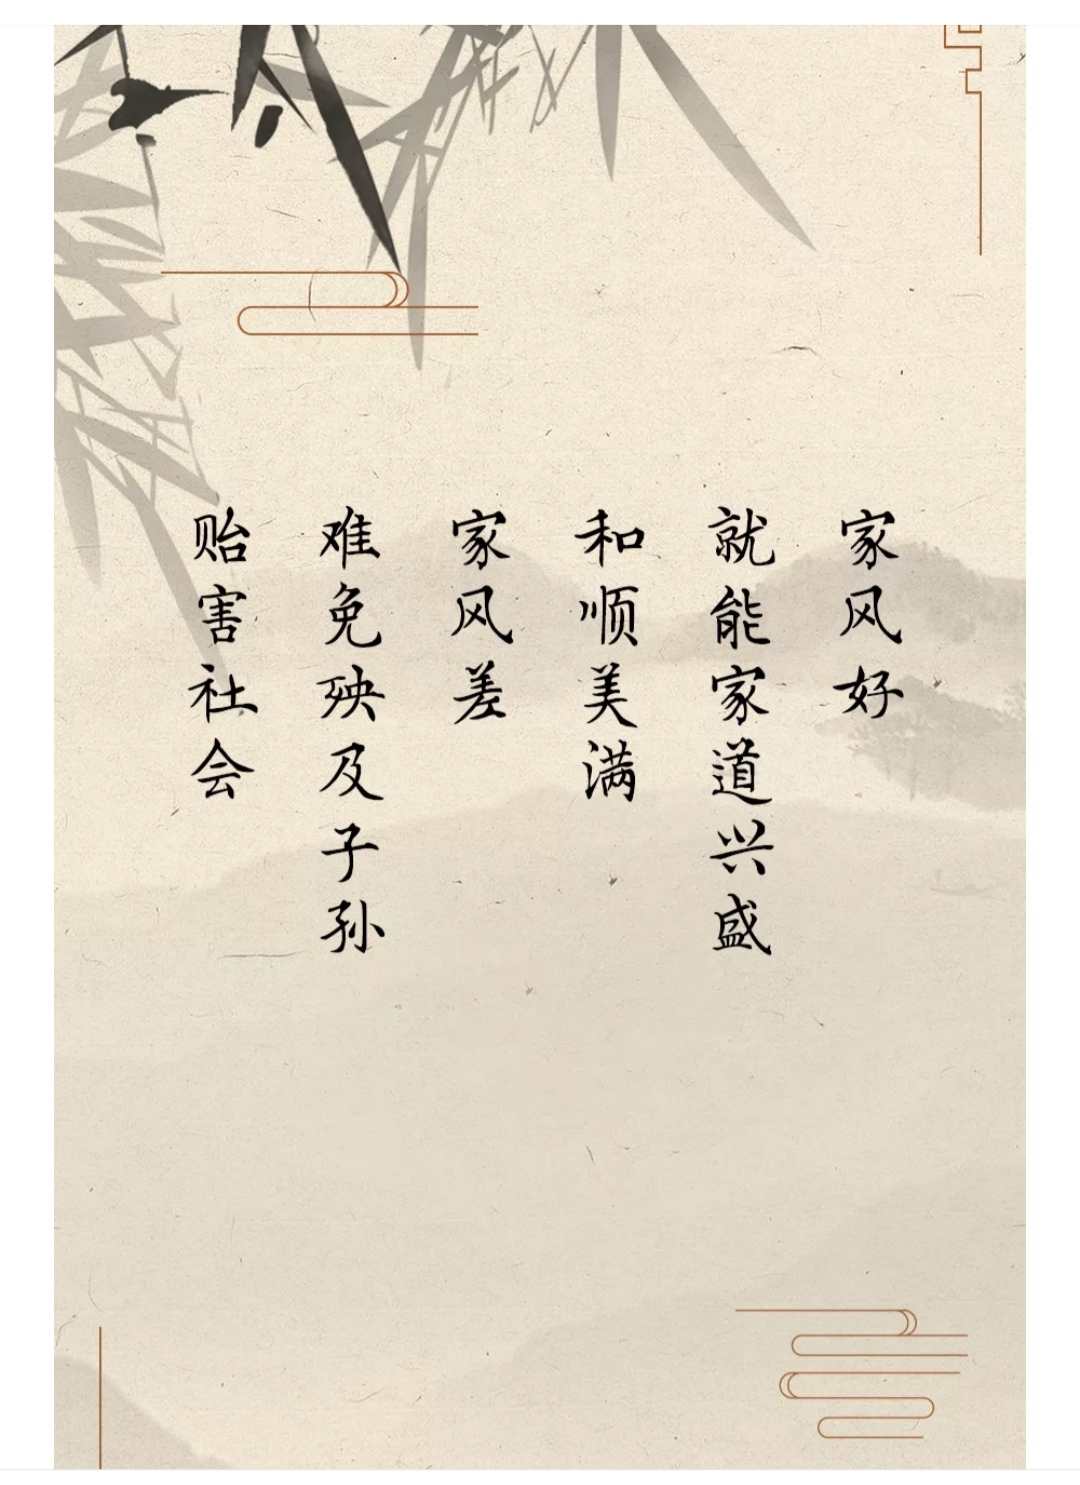 家风好
就能家道兴盛
和顺美满
家风差
难免殃及子孙
贻害社会